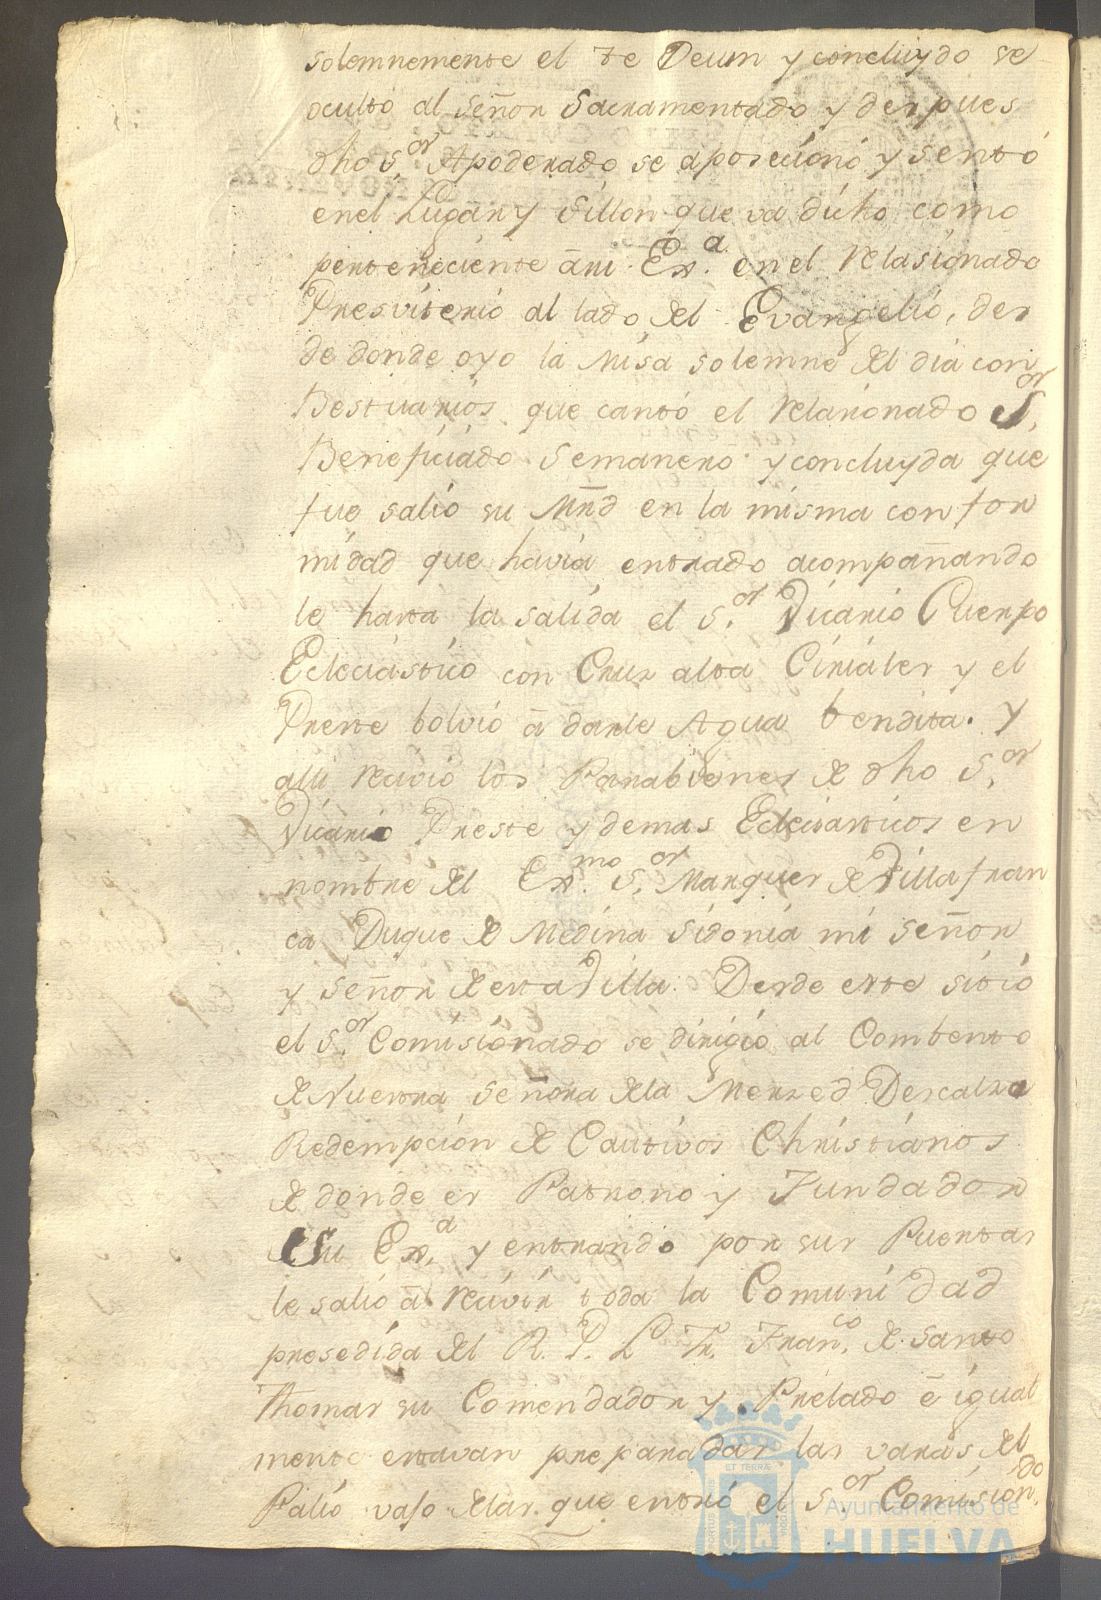 solemnemente el te Deum y concluydo se
ocultó al Señor Sacramentado y despues
dho S.or Apoderado se aposecionó y sentó
en el Lugar y Sillon que va dicho como
perteneciente á mi Ex.a en el relasionado
Presviterio al lado del Evangelio, des
de donde oyo la Misa solemne del dia con
Bestuarios que cantó el relacionado S.or
Beneficiado Semanero y concluyda que
fue salió su Mrd en la misma confor
midad que havia entrado acompañando
le hasta la salida el S.or Vicario Cuerpo
Ecleciastico con Cruz alta Ciriales y el
Preste bolvió á darle Agua bendita. Y
alli recivió los Parabienes de dho S.or
Vicario Preste y demas Ecleciasticos en
nombre del Ex.mo S.or Marques de Villafran
ca Duque de Medina Sidonia mi señor
y señor de esta Villa. Desde este sitio
el S.or Comisionado se dirigió al Combento
de Nuestra Señora de la Merzed Descalza
Redempcion de Cautivos Christianos
de donde es Patrono y Fundador
Su Ex.a y entrando por sus Puertas
le salió á recivir toda la Comunidad
presedida del R. P. L. Fr. Fran.co de Santo
Thomas su Comendador y Prelado é igual
mente estavan preparadas las varas del
Palio vajo de las que entró el S.or Comision.do
Ayuntamiento de
HUELVA